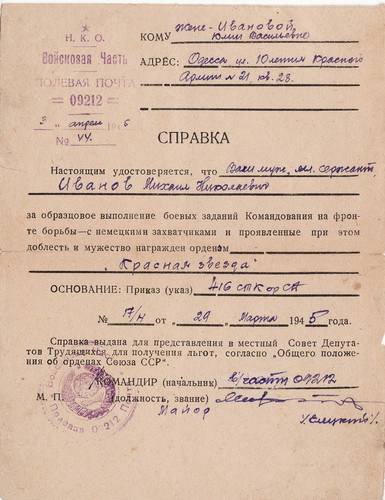 Н. К. О.
Войсковая Часть
ПОЛЕВАЯ ПОЧТА
— 09212 —
3 „ апреля 1945
№ 44.
КОМУ Жене - Ивановой
Юлии Васильевне
АДРЕС: Одесса ул. 10 летия Красной
Армии № 21 кв. 23.
СПРАВКА
Настоящим удостоверяется, что Ваш муж, мл. сержант
Иванов Михаил Николаевич
за образцовое выполнение боевых заданий Командования на фрон-
те борьбы—с немецкими захватчиками и проявленные при этом
доблесть и мужество награжден орденом
„Красная звезда"
ОСНОВАНИЕ: Приказ (указ) 416 СТКОРСД
№ 17/н от „ 29 „ Марта 1945 года.
Справка выдана для представления в местный Совет Депута-
тов Трудящихся для получения льгот, согласно „Общего положе-
ния об орденах Союза ССР".
КОМАНДИР (начальник) в/части 09212
М. П. (должность, звание)
Майор
Полевая 09212